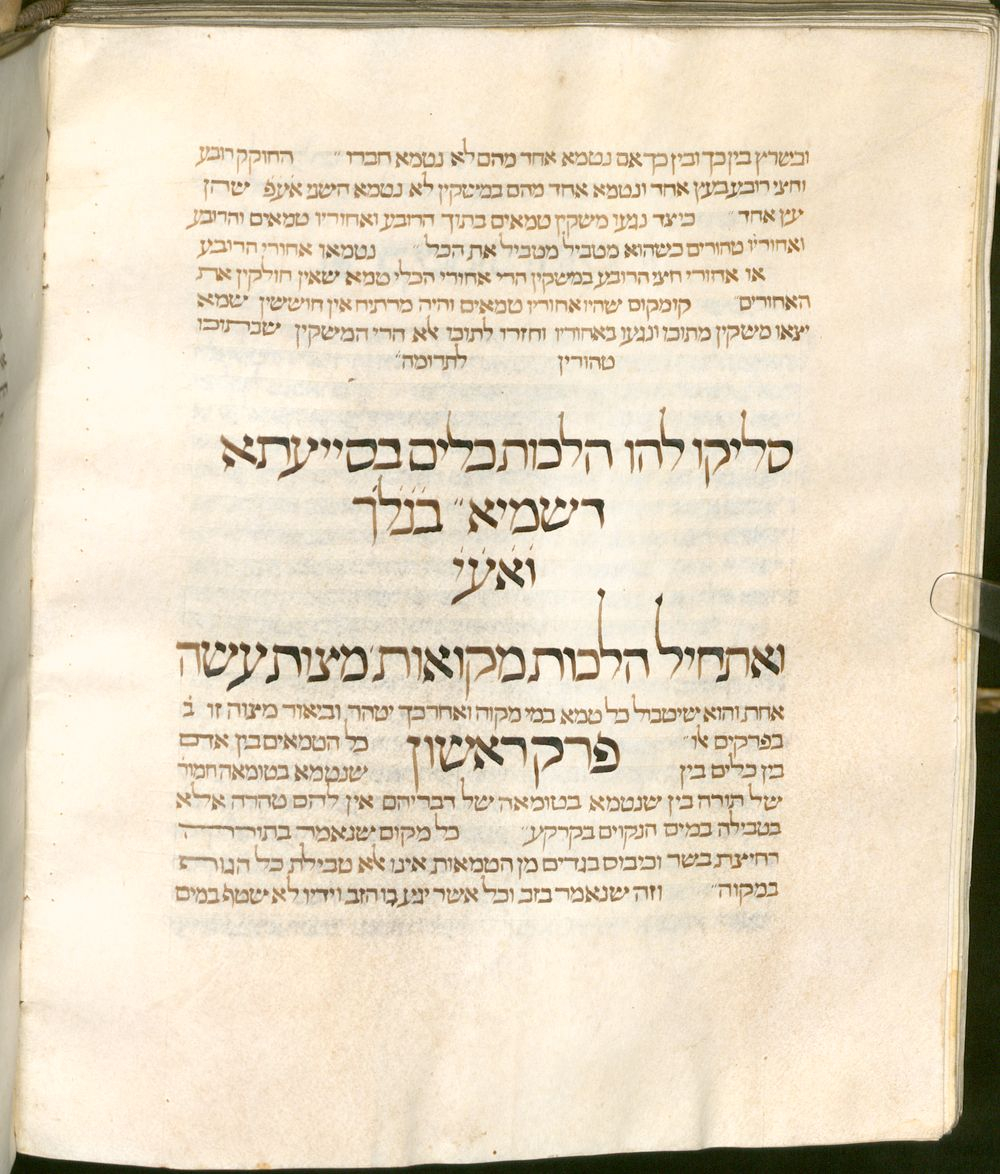 ובשרץ בין כך ובין כך אם נטמא אחד מהם לא נטמא חברו״ החוקק רובע
וחצי רובע בעץ אחד ונטמא אחד מהם במשקין לא נטמא השני אעפ שהן
עץ אחד״ כיצד נגעו משקין טמאים בתוך הרובע ואחוריו טמאים והרובע
ואחוריו טהורים כשהוא מטביל מטביל את הכל״ נטמאו אחורי הרובע
או אחורי חצי הרובע במשקין הרי אחורי הכלי טמא שאין חולקין את
האחורים״ קומקום שהיו אחוריו טמאים והיה מרתיח אין חוששין שמא
יצאו משקין מתוכו ונגעו באחוריו וחזרו לתוכו לא הרי המשקין שבתוכו
טהורין לתרומה״
סליקו להו הלכות כלים בסייעתא
דשמיא״ בנלך
ואעי
ואתחיל הלכות מקואות׳ מצות עשה
אחת והוא שיטבול כל טמא במי מקוה ואחר כך יטהר וביאור מצוה זו ב
בפרקים לו״ פרק ראשון כל הטמאים בין אדם
בין כלים בין שנטמא בטומאה חמור
של תורה בין שנטמא בטומאה של דבריהם אין להם טהרה אלא
בטבילה במים הנקוים בקרקע״ כל מקום שנאמר בתורה
רחיצת בשר וכיבוס בגדים מן הטמאות אינו לא טבילת כל הגוף
במקוה״ וזה שנאמר בזב וכל אשר יגע בו הזב וידיו לא שטף במים